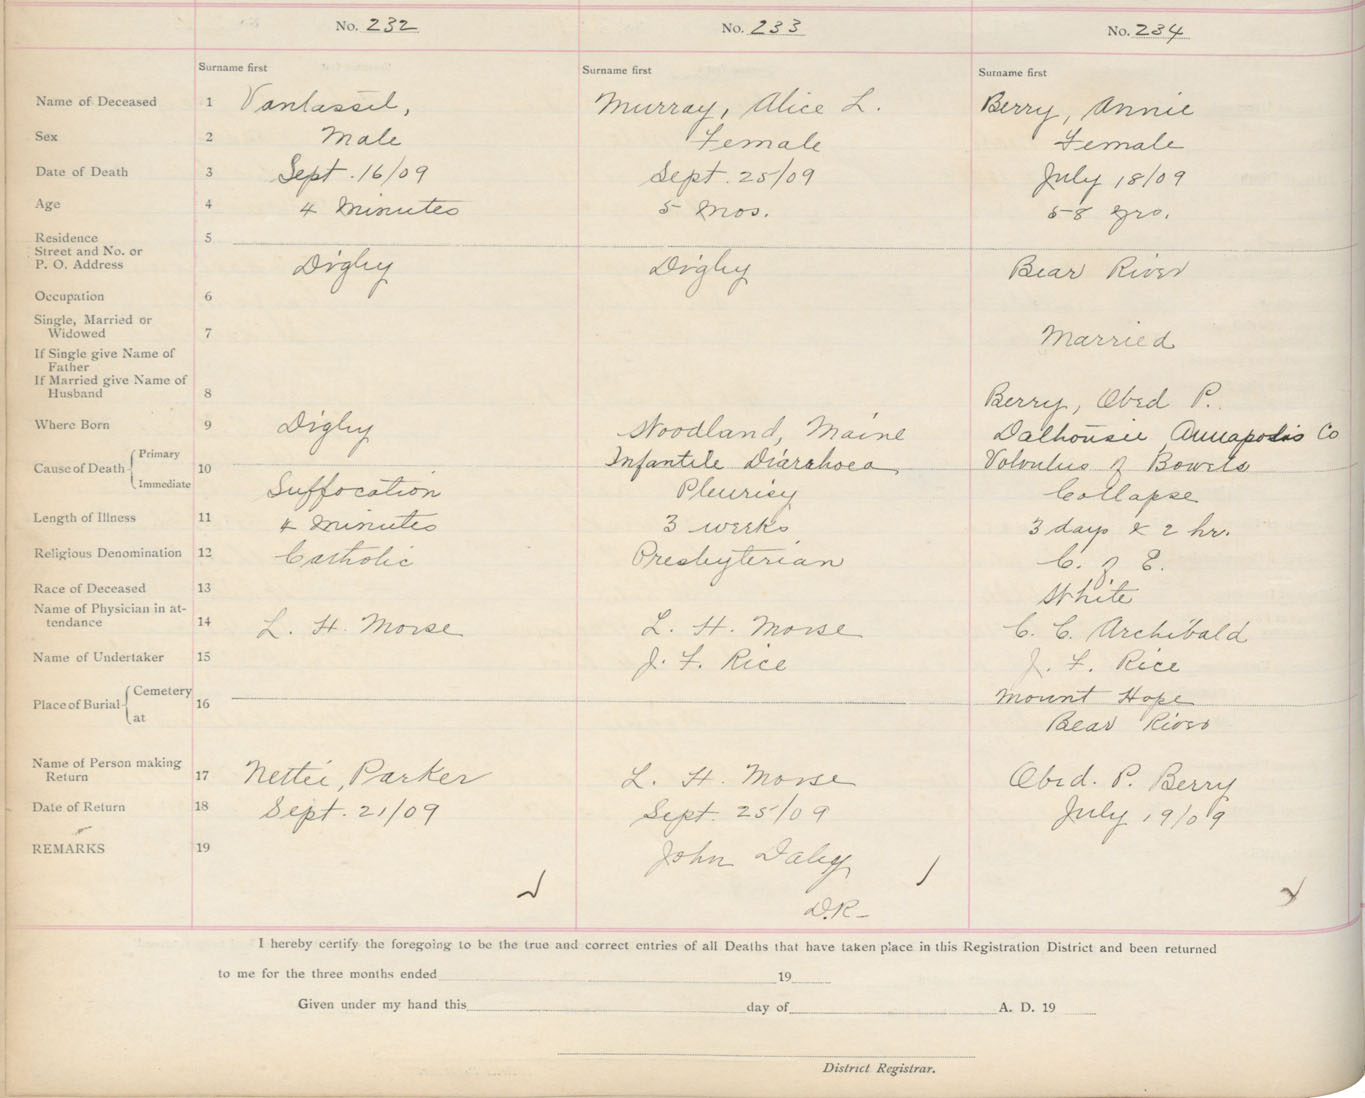 No. 232 No. 233 No. 234
Surname first Surname first Surname first
Name of Deceased 1 Vantassil, Murray, Alice L. Berry, Annie
Sex 2 Male Female Female
Date of Death 3 Sept. 16/09 Sept. 25/09 July 18/09
Age 4 4 Minutes 5 Mos. 58 yrs.
Residence 5
Street and No. or
P. O. Address Digby Digby Bear River
Occupation 6
Single, Married or
Widowed 7 Married
If Single give Name of
Father
If Married give Name of
Husband 8 Berry, Obed P.
Where Born 9 Digby Woodland, Maine Dalhousie Annapolis Co
Cause of Death Primary 10 Infantile Diarrhoea Volvulus of Bowels
Immediate Suffocation Pleurisy Collapse
Length of Illness 11 4 Minutes 3 weeks 3 days & 2 hr.
Religious Denomination 12 Catholic Presbyterian C. of E.
Race of Deceased 13 White
Name of Physician in at-
tendance 14 L. H. Morse L. H. Morse C. C. Archibald
Name of Undertaker 15 J. F. Rice J. F. Rice
Place of Burial Cemetery 16 Mount Hope
at Bear River
Name of Person making
Return 17 Nettei, Parker L. H. Morse Obed. P. Berry
Date of Return 18 Sept. 21/09 Sept. 25/09 July 19/09
REMARKS 19 John Daley
D.R.
I hereby certify the foregoing to be the true and correct entries of all Deaths that have taken place in this Registration District and been returned
to me for the three months ended 19
Given under my hand this day of A. D. 19
District Registrar.